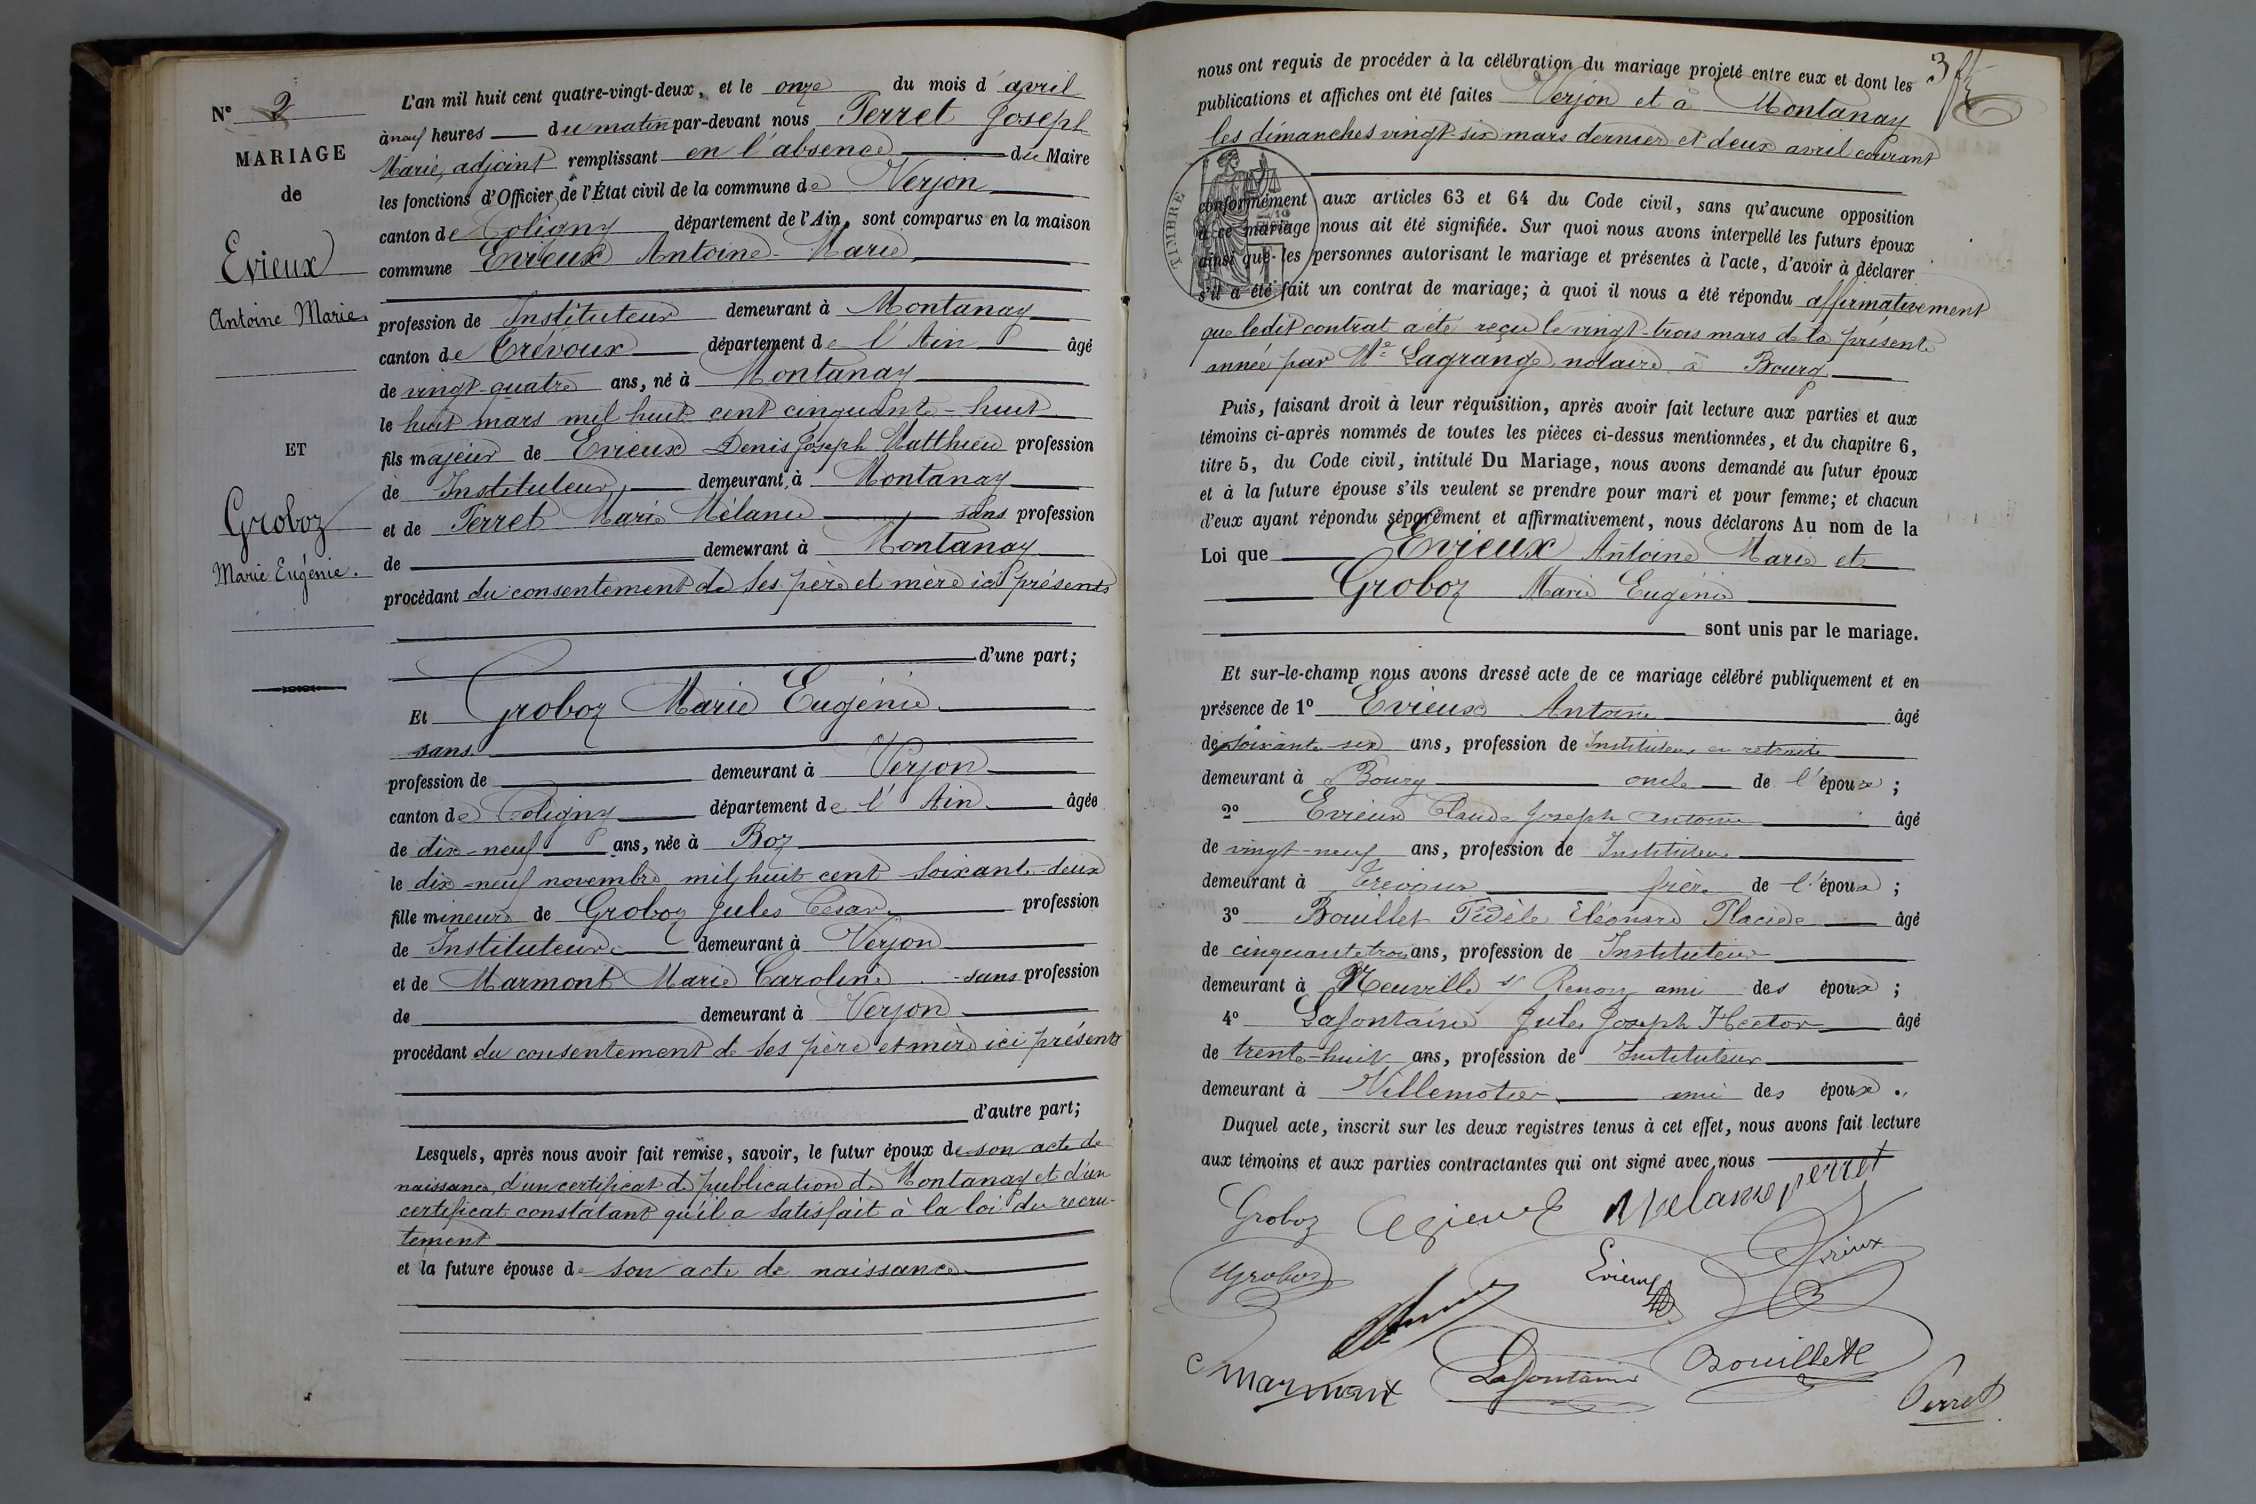 N° 2
MARIAGE
de
Evieux
Antoine Marie
ET
Groboz
Marie Eugénie.
L'an mil huit cent quatre-vingt-deux, et le onze du mois d'avril
à neuf heures du matin par-devant nous Perret Joseph
Marie, adjoint remplissant en l'absence du Maire
les fonctions d'Officier de l'État civil de la commune de Verjon
canton de Coligny département de l'Ain, sont comparus en la maison
commune Evieux Antoine-Marie
profession de Instituteur demeurant à Montanay
canton de Trévoux département de l'Ain âgé
de vingt-quatre ans, né à Montanay
le huit mars mil huit cent cinquante-huit
fils majeur de Evieux Denis Joseph Matthieu profession
de Instituteur demeurant à Montanay
et de Perret Marie Mélanie sans profession
de demeurant à Montanay
procédant du consentement de ses père et mère ici présents
d'une part;
Et Groboz Marie Eugénie
sans
profession de demeurant à Verjon
canton de Coligny département de l'Ain âgée
de dix-neuf ans, née à Boz
le dix-neuf novembre mil huit cent soixante-deux
fille mineure de Groboz Jules César profession
de Instituteur demeurant à Verjon
et de Marmont Marie Caroline sans profession
de demeurant à Verjon
procédant du consentement de ses père et mère ici présents
d'autre part;
Lesquels, après nous avoir fait remise, savoir, le futur époux de son acte de
naissance, d'un certificat de publication de Montanay et d'un
certificat constatant qu'il a satisfait à la loi du recru-
tement
et la future épouse de son acte de naissance
3
nous ont requis de procéder à la célébration du mariage projeté entre eux et dont les
publications et affiches ont été faites Verjon et à Montanay
les dimanches vingt-six mars dernier et deux avril courant
TIMBRE
conformément aux articles 63 et 64 du Code civil, sans qu'aucune opposition
à ce mariage nous ait été signifiée. Sur quoi nous avons interpellé les futurs époux
ainsi que les personnes autorisant le mariage et présentes à l'acte, d'avoir à déclarer
s'il a été fait un contrat de mariage; à quoi il nous a été répondu affirmativement
que ledit contrat a été reçu le vingt-trois mars de la présente
année par Me Lagrange, notaire à Bourg
Puis, faisant droit à leur réquisition, après avoir fait lecture aux parties et aux
témoins ci-après nommés de toutes les pièces ci-dessus mentionnées, et du chapitre 6,
titre 5, du Code civil, intitulé Du Mariage, nous avons demandé au futur époux
et à la future épouse s'ils veulent se prendre pour mari et pour femme; et chacun
d'eux ayant répondu séparément et affirmativement, nous déclarons Au nom de la
Loi que Evieux Antoine Marie et
Groboz Marie Eugénie
sont unis par le mariage.
Et sur-le-champ nous avons dressé acte de ce mariage célébré publiquement et en
présence de 1° Evieux Antoine âgé
de soixante-six ans, profession de Instituteur en retraite
demeurant à Bourg oncle de l'époux;
2° Evieux Claude Joseph Antoine âgé
de vingt-neuf ans, profession de Instituteur
demeurant à Trévoux frère de l'époux;
3° Bouillet Fidèle Eléonore Placide âgé
de cinquante trois ans, profession de Instituteur
demeurant à Neuville s/ Renon ami des époux;
4° Lafontaine Jules Joseph Hector âgé
de trente-huit ans, profession de Instituteur
demeurant à Villemotier ami des époux.
Duquel acte, inscrit sur les deux registres tenus à cet effet, nous avons fait lecture
aux témoins et aux parties contractantes qui ont signé avec nous
Groboz Evieux Melanie perret
Groboz Evieux Evieux
Marmont Lafontaine Bouillet
Perret